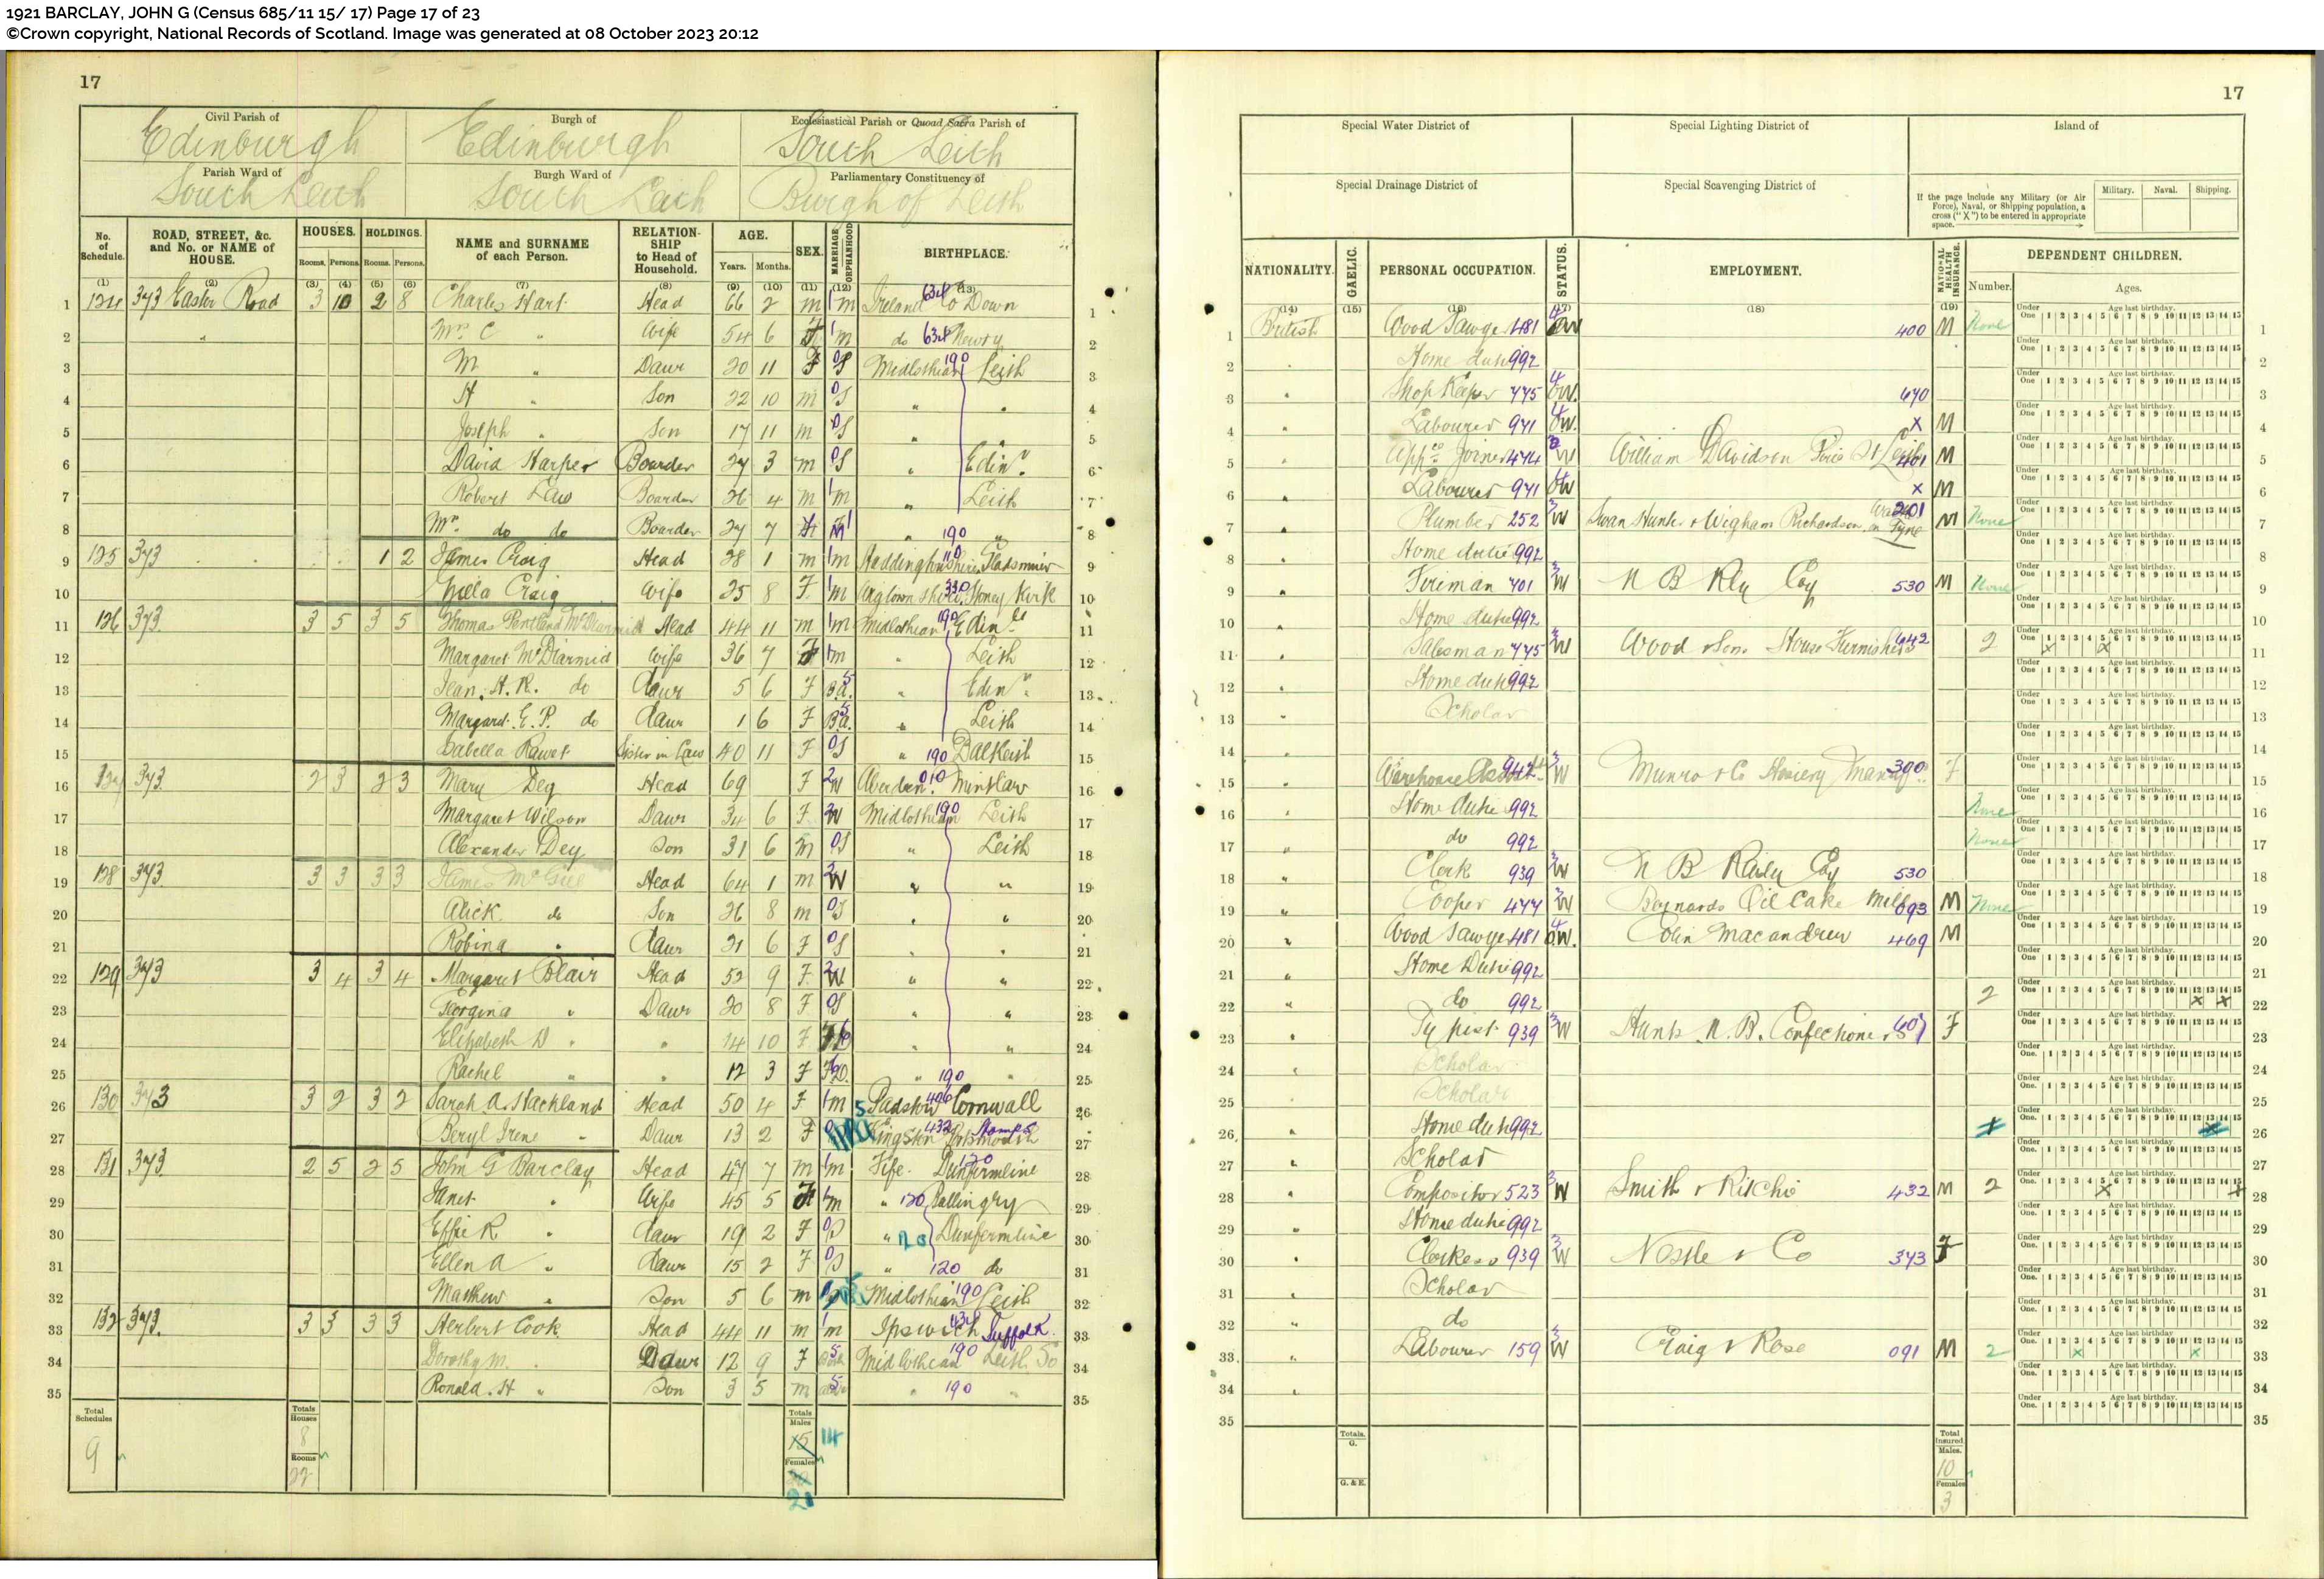 1921 BARCLAY, JOHN G (Census 685/11 15/ 17) Page 17 of 23
©Crown copyright, National Records of Scotland. Image was generated at 08 October 2023 20:12
17
Civil Parish of Edinburgh Burgh of Edinburgh Ecclesiastical Parish or Quoad Sacra Parish of South Leith
Parish Ward of South Leith Burgh Ward of South Leith Parliamentary Constituency of Burgh of Leith
No. of Schedule. ROAD, STREET, &c. and No. or NAME of HOUSE. HOUSES. Rooms. Persons. HOLDINGS. Rooms. Persons. NAME and SURNAME of each Person. RELATIONSHIP to Head of Household. AGE. Years. Months. SEX. MARRIAGE or ORPHANHOOD BIRTHPLACE.
(1) (2) (3) (4) (5) (6) (7) (8) (9) (10) (11) (12) (13)
1 124 373 Easter Road 3 10 2 8 Charles Hart Head 66 2 m m Ireland Co Down 1
2 " Mrs C " Wife 54 6 F m do Newry 2
3 M " Daur 20 11 F S Midlothian Leith 3
4 H " Son 22 10 m S " " 4
5 Joseph " Son 17 11 m S " " 5
6 David Harper Boarder 27 3 m S " Edinr. 6
7 Robert Law Boarder 26 4 m m " Leith 7
8 Mrs do do Boarder 27 7 F M " 190 " 8
9 125 373 1 2 James Craig Head 28 1 m m Haddingtonshire Gladsmuir 9
10 Craig Wife 25 8 F m Wigtownshire Stoney Kirk 10
11 126 373 3 5 3 5 Thomas Pentland McDiarmid Head 44 11 m m Midlothian Edin 11
12 Margaret McDiarmid Wife 36 7 F m " Leith 12
13 Jean. H. R. do Daur 5 6 F B.a. " Edinr 13
14 Margaret. E. P. do Daur 1 6 F B.a. " Leith 14
15 Isabella Sister in Law 40 11 F S " 190 Dalkeith 15
16 127 373 2 3 2 3 Mary Dey Head 69 F W Aberdeen Mintlaw 16
17 Margaret Wilson Daur 34 6 F W Midlothian Leith 17
18 Alexander Dey Son 31 6 m S " Leith 18
19 128 373 3 3 3 3 James McGill Head 64 1 m W " " 19
20 Alick do Son 26 8 m S " " 20
21 Robina " Daur 21 6 F S " " 21
22 129 373 3 4 3 4 Margaret Blair Head 52 9 F W " " 22
23 Georgina " Daur 20 8 F S " " 23
24 Elizabeth D " " 14 10 F " " 24
25 Rachel " " 12 3 F " 190 " 25
26 130 373 3 2 3 2 Sarah A. Hackland Head 50 4 F m Padstow Cornwall 26
27 Beryl Irene " Daur 13 2 F Kingston Portsmouth Hamps 27
28 131 373 2 5 2 5 John G Barclay Head 47 7 m m Fife. Dunfermline 28
29 Janet " Wife 45 5 F m " 120 Ballingry 29
30 Effie R " Daur 19 2 F S " 120 Dunfermline 30
31 Ellen A " Daur 15 2 F S " 120 do 31
32 Mathew " Son 5 6 m Midlothian 190 Leith 32
33 132 373 3 3 3 3 Herbert Cook Head 44 11 m m Ipswich Suffolk 33
34 Dorothy M. " Daur 12 9 F Midlothian 190 Leith So 34
35 Ronald. H " Son 3 5 m " 190 " 35
Total Schedules 9 Totals Houses 8 Rooms 22 Totals Males 15 14 Females 21
17
Special Water District of Special Lighting District of Island of
Special Drainage District of Special Scavenging District of If the page include any Military (or Air Force), Naval, or Shipping population, a cross ("X") to be entered in appropriate space. Military. Naval. Shipping.
NATIONALITY. GAELIC. PERSONAL OCCUPATION. STATUS. EMPLOYMENT. NATIONAL HEALTH INSURANCE. DEPENDENT CHILDREN. Number. Ages.
(14) (15) (16) (17) (18) (19)
Under One 1 2 3 4 5 6 7 8 9 10 11 12 13 14 15 Age last birthday.
1 British Wood Sawyer 481 OW 400 M None 1
2 " Home duties 992 2
3 " Shop Keeper 775 OW. 670 3
4 " Labourer 971 OW. x M 4
5 " Appce Joiner 474 W William Davidson Leith 401 M 5
6 " Labourer 971 OW x M 6
7 " Plumber 252 W Swan Hunter & Wigham Richardson on Tyne 201 M None 7
8 " Home duties 992 8
9 " Fireman 701 W N B Rly Coy 530 M None 9
10 " Home duties 992 10
11 " Salesman 775 W Wood & Son. House Furnishers 642 2 x x 11
12 " Home duties 992 12
13 " Scholar 13
14 " 14
15 " Warehouse 942 W Munro & Co Hosiery 390 F 15
16 " Home duties 992 None 16
17 " do 992 None 17
18 " Clerk 939 W N B Railw Coy 530 18
19 " Cooper 477 W Bernards Oil Cake Mill 093 M None 19
20 " Wood Sawyer 481 OW. Colin Macandrew 469 M 20
21 " Home Duties 992 21
22 " do 992 2 x x 22
23 " Typist 939 W Hunts N. B. Confectioners F 23
24 " Scholar 24
25 " Scholar 25
26 " Home duties 992 1 x 26
27 " Scholar 27
28 " Compositor 523 W Smith & Ritchie 432 M 2 x x 28
29 " Home duties 992 29
30 " Clerkess 939 W Nestle & Co 373 F 30
31 " Scholar 31
32 " do 32
33 " Labourer 159 W Craig & Rose 091 M 2 x x 33
34 " 34
35 35
Totals. G. G. & E. Total Insured Males. 10 Females 3